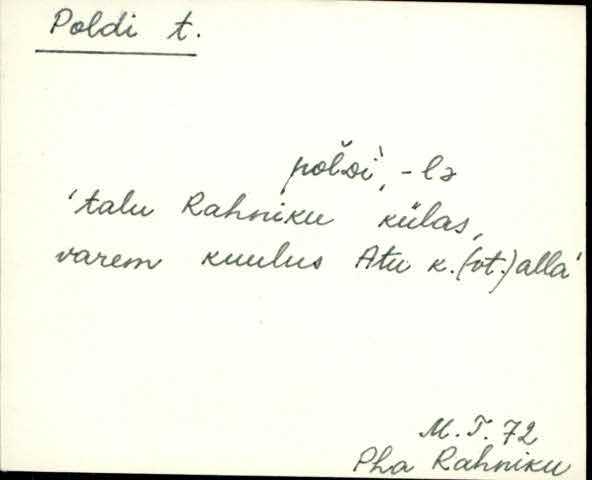 Poldi t.
po̬ldi`, -lə
'talu Rahniku külas,
varem kuulus Atu k. (vt.) alla'
M. T. 72
Pha Rahniku